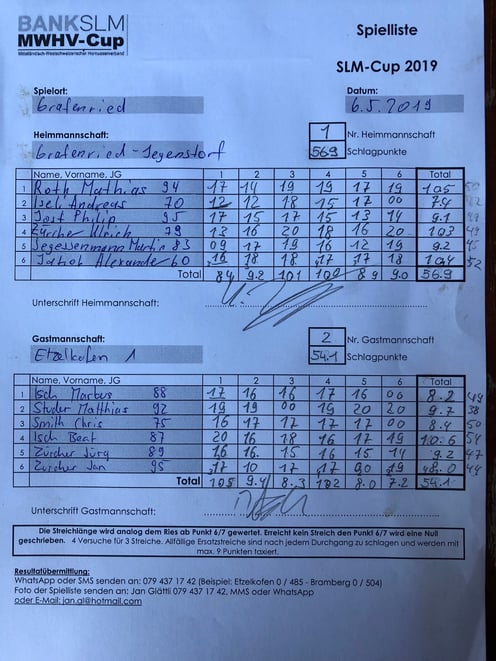 BANKSLM
MWHV-Cup
Mittelländisch-Westschweizerischer Hornusserverband
Spielliste
SLM-Cup 2019
Spielort: Datum:
Grafenried 6.5.2019
Heimmannschaft: 1 Nr. Heimmannschaft
Grafenried-Jegenstorf 569 Schlagpunkte
Name, Vorname, JG 1 2 3 4 5 6 Total
1 Roth Mathias 94 17 14 19 19 17 19 105
2 Iseli Andreas 70 12 12 18 15 17 00 7.4
3 Jost Philip 95 17 15 17 15 13 14 9.1
4 Zürcher Ulrich 79 13 16 20 18 16 20 103
5 Segessenmann Martin 83 09 17 19 16 12 19 9.2
6 Jakob Alexander 60 16 18 18 17 17 18 104
Total 84 9.2 101 100 89 9.0 56.9
Unterschrift Heimmannschaft:
Gastmannschaft: 2 Nr. Gastmannschaft
Etzelkofen 1 54.1 Schlagpunkte
Name, Vorname, JG 1 2 3 4 5 6 Total
1 Isch Markus 88 17 16 16 17 16 00 8.2
2 Studer Matthias 92 19 19 00 19 20 20 9.7 38
3 Smith Chris 75 16 17 17 17 17 00 8.4 50
4 Isch Beat 87 20 16 18 16 17 19 10.6 54
5 Zürcher Jürg 89 16 16 15 16 15 14 9.2 47
6 Zürcher Jan 95 17 10 17 17 00 19 8.0 44
Total 105 9.4 8.3 102 8.0 7.2 54.1
Unterschrift Gastmannschaft:
Die Streichlänge wird analog dem Ries ab Punkt 6/7 gewertet. Erreicht kein Streich den Punkt 6/7 wird eine Null
geschrieben. 4 Versuche für 3 Streiche. Allfällige Ersatzstreiche sind nach jedem Durchgang zu schlagen und werden mit
max. 9 Punkten taxiert.
Resultatübermittlung:
WhatsApp oder SMS senden an: 079 437 17 42 (Beispiel: Etzelkofen 0 / 485 - Bramberg 0 / 504)
Foto der Spielliste senden an: Jan Glättli 079 437 17 42, MMS oder WhatsApp
oder E-Mail: jan.gl@hotmail.com